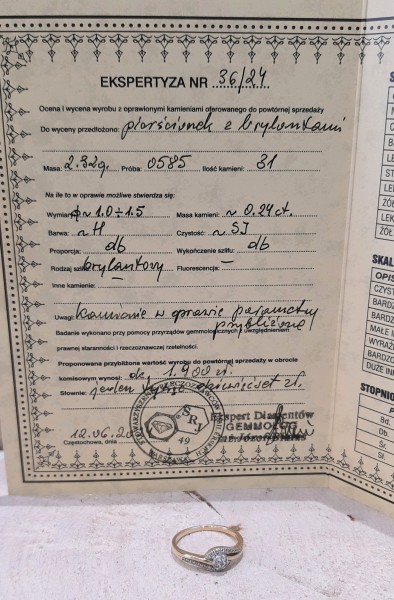 EKSPERTYZA NR 36/24
Ocena i wycena wyrobu z oprawionymi kamieniami oferowanego do powtórnej sprzedaży
Do wyceny przedłożono: pierścionek z brylantami
Masa: 2.32g. Próba: 0585 Ilość kamieni: 31
Na ile to w oprawie możliwe stwierdza się:
Wymiary ~ 1.0÷1.5 Masa kamieni: ~ 0.24ct.
Barwa: ~H Czystość: ~SI
Proporcja: db Wykończenie szlifu: db
Rodzaj szlifu: brylantowy Fluorescencja: —
Inne kamienie: —
Uwagi: Kamienie w oprawie parametry
przybliżone
Badanie wykonano przy pomocy przyrządów gemmologicznych z uwzględnieniem
prawnej staranności i rzeczoznawczej rzetelności.
Proponowana przybliżona wartość wyrobu do powtórnej sprzedaży w obrocie
komisowym wynosi: ok. 1.900 zł.
Słownie: jeden tysiąc dziewięćset zł.
SRJ
49
WARSZAWA
Ekspert Diamentów
GEMMOLOG
Częstochowa, dnia 12.06.20
SKAL
OPIS
CZYS
BARDZ
BARDZ
MAŁE I
WYRAŹ
BARDZO
DUŻE IN
STOPNIO
Bd.
Db.
Śr.
Sł.